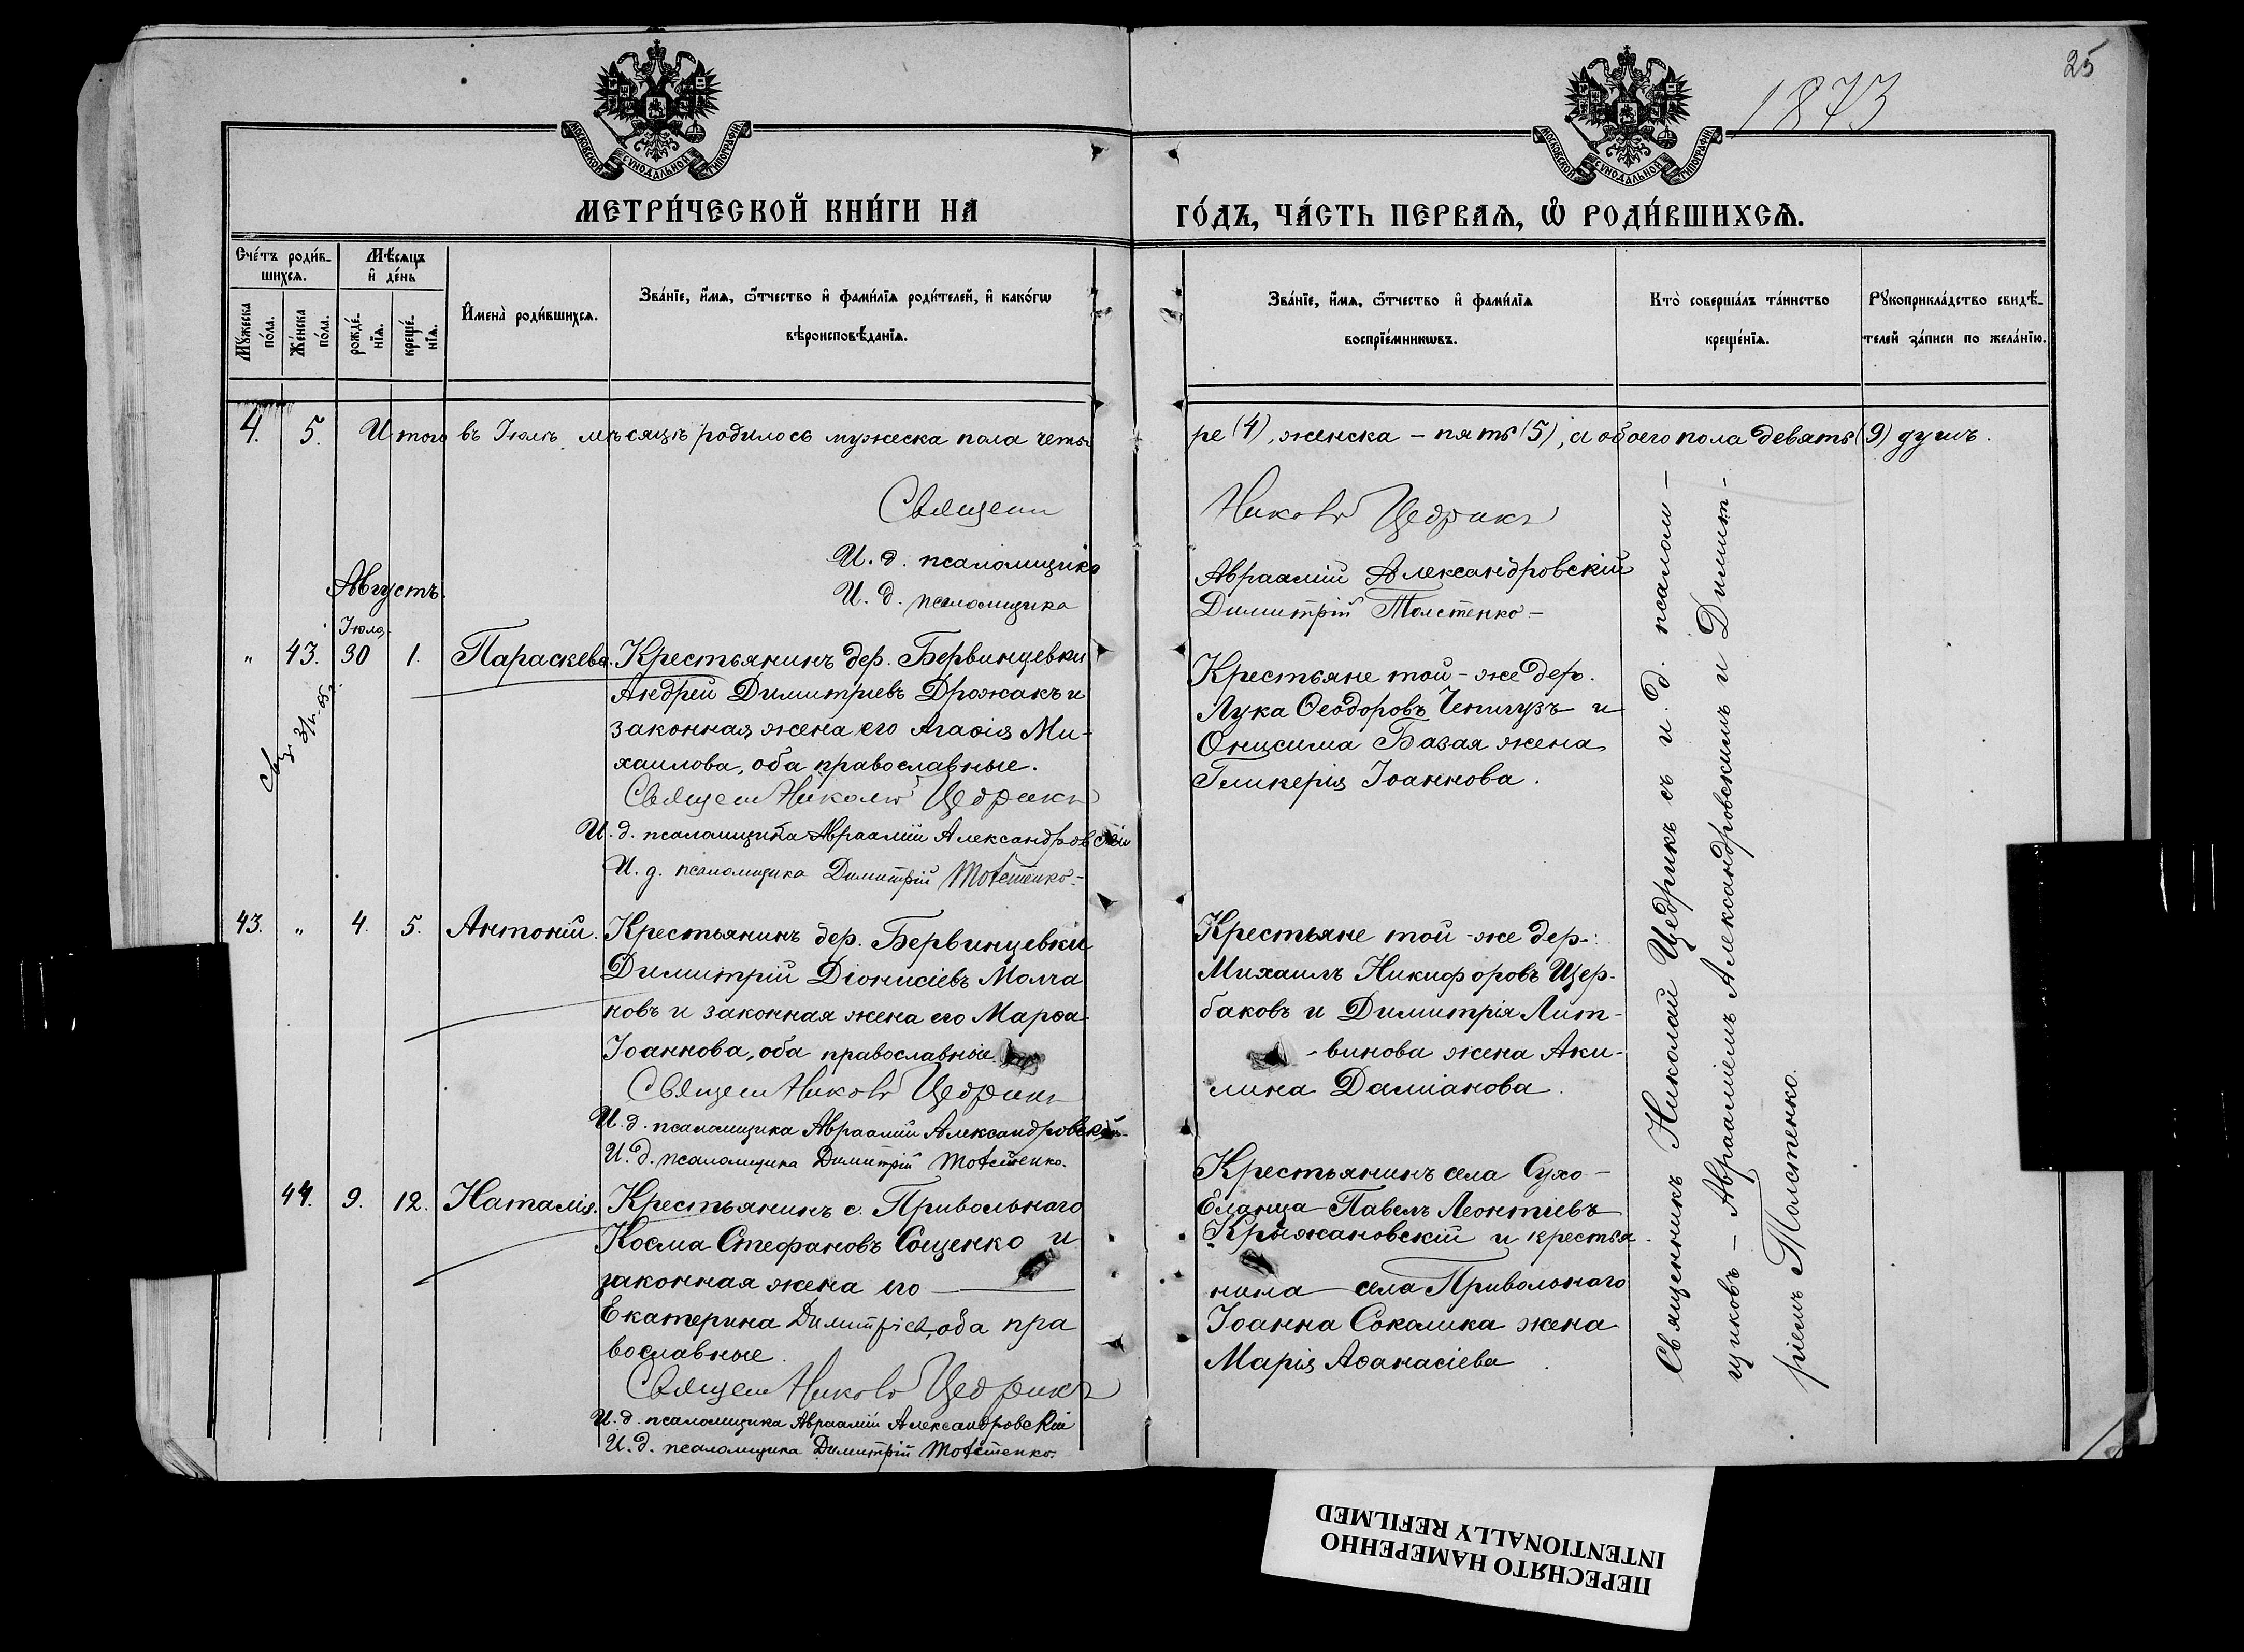 25
1873
МОСКОВСКОЙ СѴНОДАЛЬНОЙ ТИПОГРАФІИ
МОСКОВСКОЙ СѴНОДАЛЬНОЙ ТИПОГРАФІИ
МЕТРИ́ЧЕСКОЙ КНИ́ГИ НА ГО́ДЪ, ЧА́СТЬ ПЕРВАѦ, Ѽ РОДИ́ВШИХСѦ.
Сче́тъ роди́в-
шихсѧ.
Мꙋ́жеска
по́ла.
Же́нска
по́ла.
Мѣ́сѧцъ
и҆ де́нь
рожде́-
нїѧ.
креще́-
нїѧ.
И҆мена̀ роди́вшихсѧ.
Зва́нїе, и҆́мѧ, ѻ҆́тчество и҆ фами́лїѧ роди́телей, и҆ како́гѡ
вѣроисповѣ́данїѧ.
Зва́нїе, и҆́мѧ, ѻ҆́тчество и҆ фами́лїѧ
воспрїе́мникѡвъ.
Кто̀ соверша́лъ та́инство
креще́нїѧ.
Рꙋкоприкла́дство свидѣ́-
телей за́писи по жела́нїю.
4. 5. Итого въ Іюлѣ мѣсяцѣ родилось мужеска пола четы-
ре (4), женска - пять (5), а обоего пола девять (9) душъ.
Священ Никол Щедрикъ
И. д. псаломщика Авраамій Александровскій
И. д. псаломщика Димитрій Толстенко -
Августъ.
Іюля
" 43. 30 1. Параскева.
Крестьянинъ дер. Бервинцевки
Андрей Димитріевъ Дрожакъ и
законная жена его Агаѳія Ми-
хаилова, оба православные.
Священ Николай Щедрикъ
И. д. псаломщика Авраамій Александровскій
И. д. псаломщика Димитрій Толстенко.
Крестьяне той-же дер.
Лука Ѳеодоровъ Чепигузъ и
Онисима Базая жена
Гликерія Іоаннова.
43. " 4. 5. Антоній.
Крестьянинъ дер. Бервинцевки
Димитрій Діонисіевъ Молча
новъ и законная жена его Марѳа
Іоаннова, оба православные.
Священ Никол Щедрикъ
И. д. псаломщика Авраамій Александровскій
И. д. псаломщика Димитрій Толстенко.
Крестьяне той-же дер.:
Михаилъ Никифоровъ Щер-
баковъ и Димитрія Лит-
- винова жена Аки-
лина Даміанова.
44. 9. 12. Наталія.
Крестьянинъ с. Привольнаго
Косма Стефановъ Сощенко и
законная жена его
Екатерина Димитріев, оба пра
вославные.
Священ Никол Щедрикъ
И. д. псаломщика Авраамій Александровскій
И. д. псаломщика Димитрій Толстенко.
Крестьянинъ села Сухо-
Еланца Павелъ Леонтіевъ
Крыжановскій и крестья-
нина села Привольнаго
Іоанна Сокалика жена
Марія Аѳанасіева.
Священникъ Николай Щедрикъ съ и. д. псалом-
щиковъ - Авраамiемъ Александровскимъ и Димит-
ріемъ Толстенко.
ПЕРЕСНЯТО НАМЕРЕННО
INTENTIONALLY REFILMED